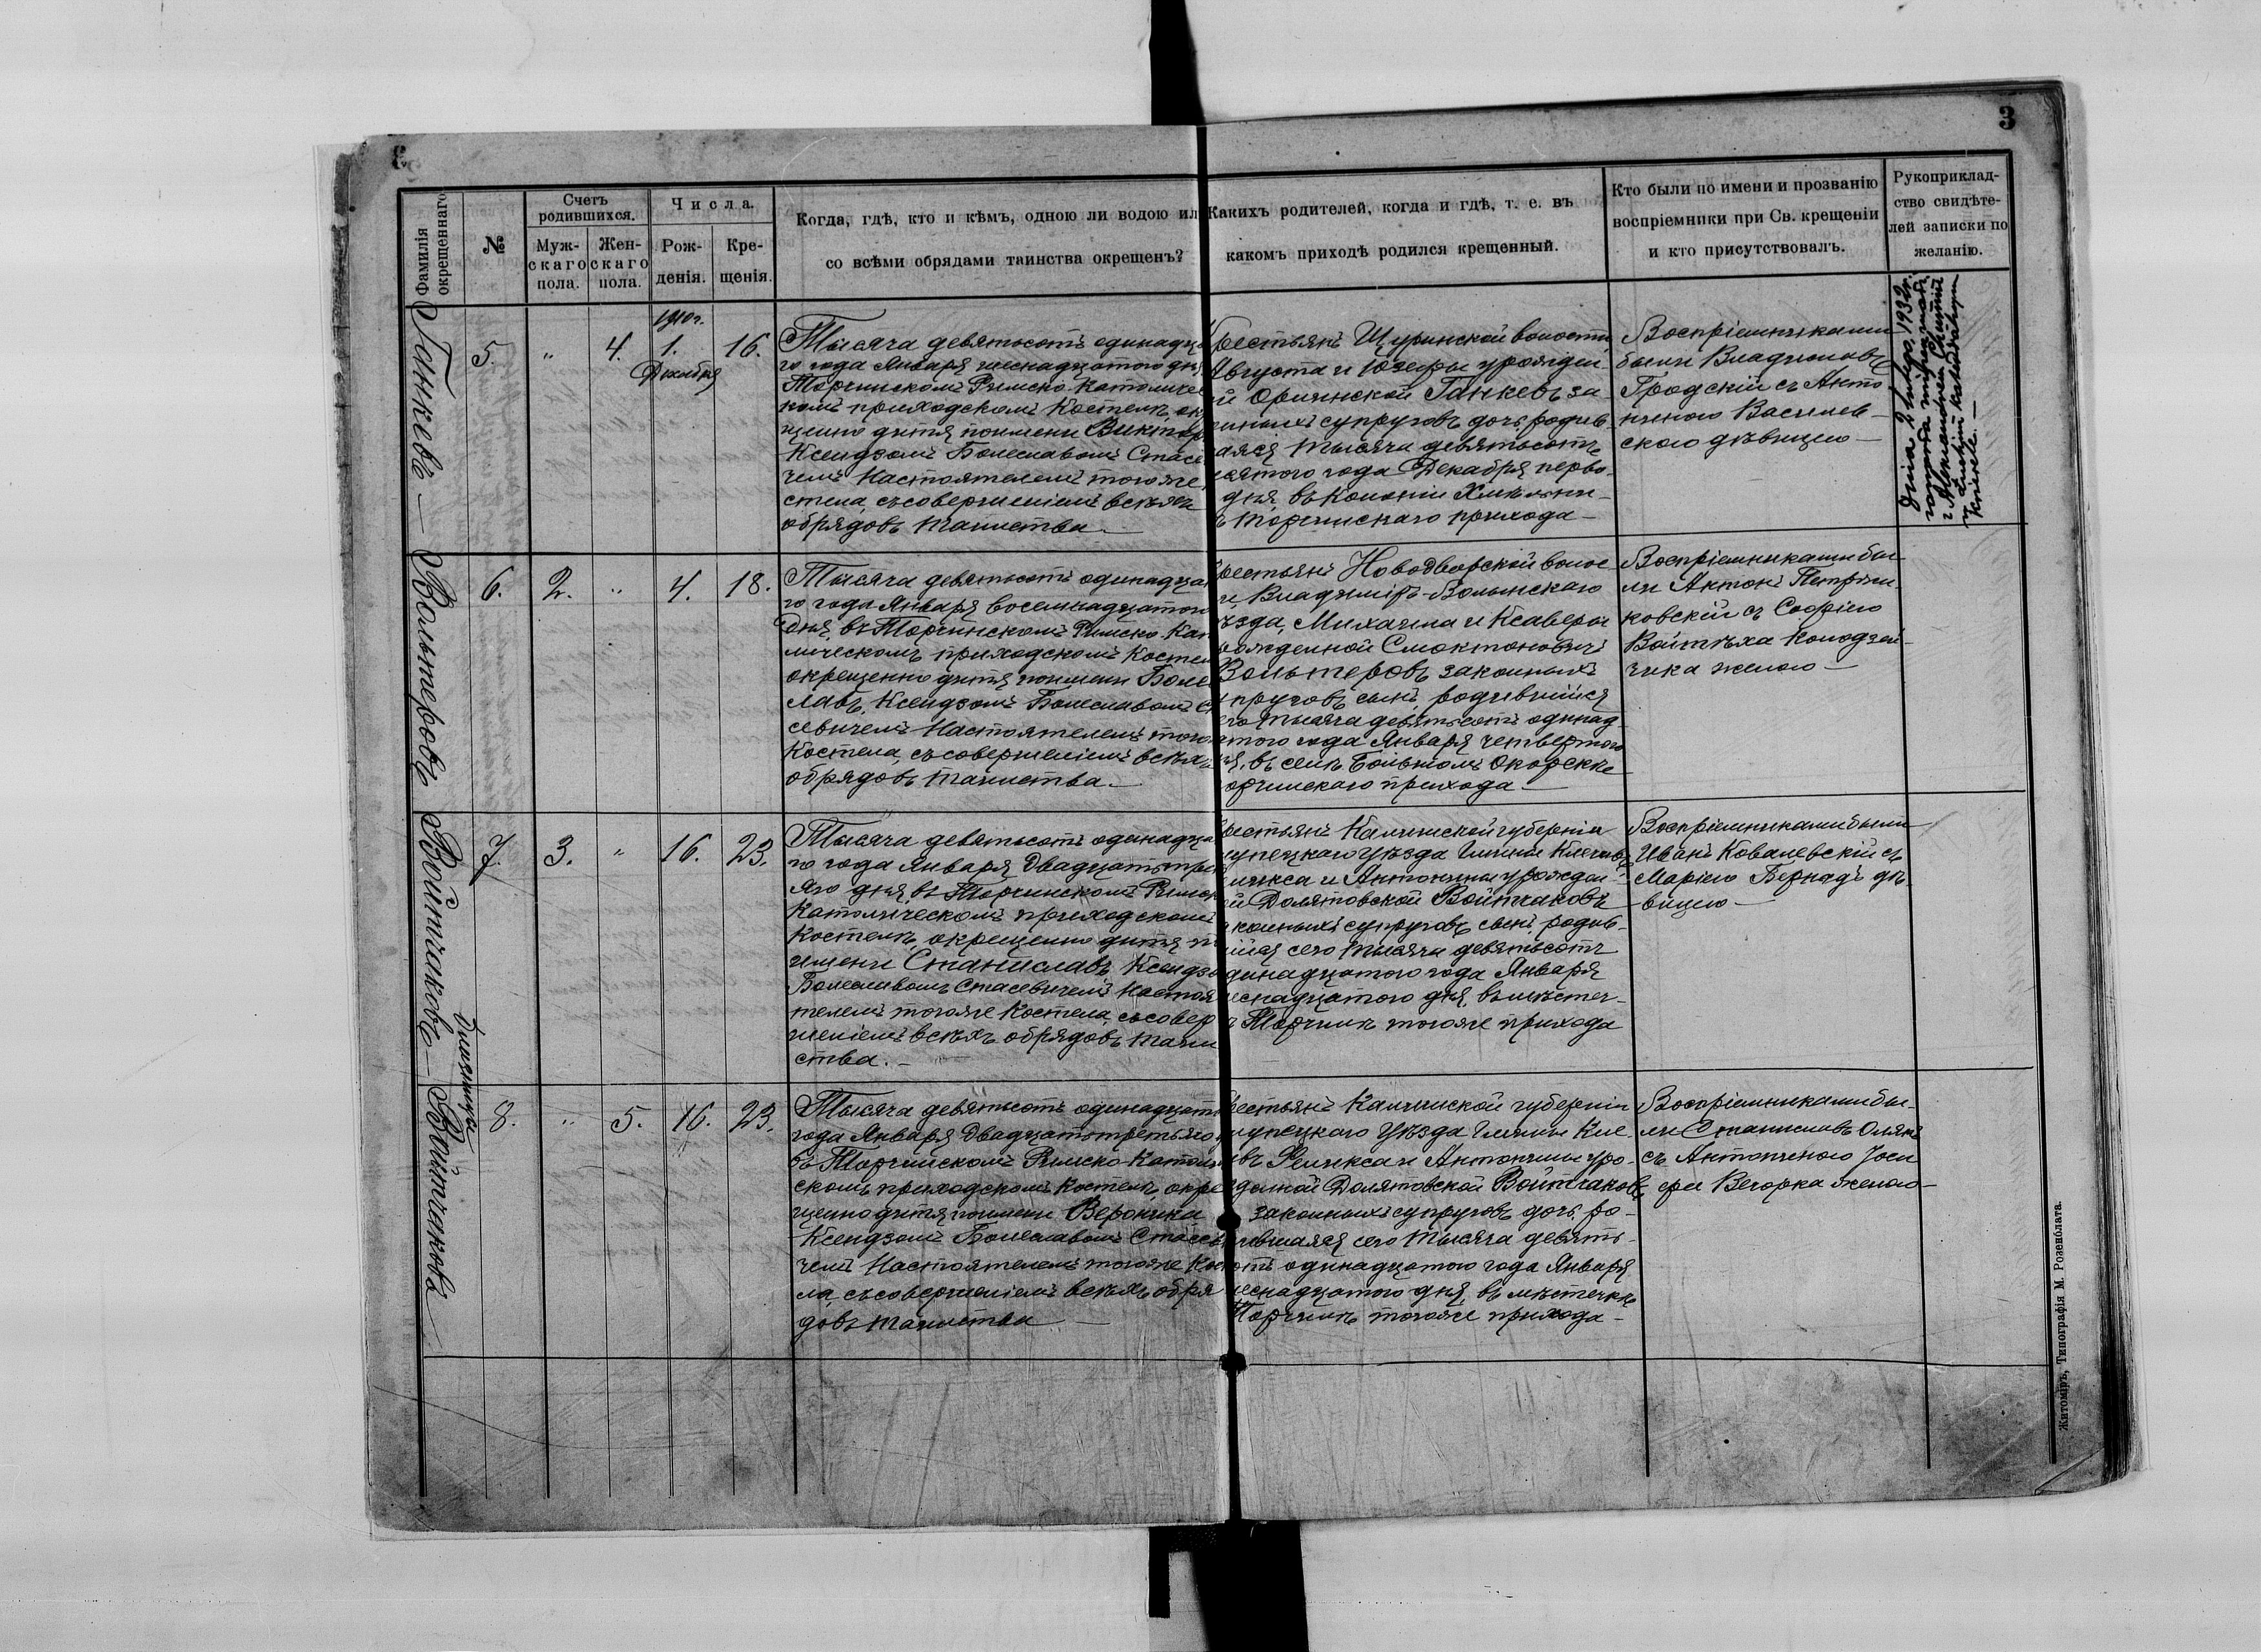 3
Фамилія окрещеннаго
№
Счетъ родившихся.
Муж-
скаго
пола.
Жен-
скаго
пола.
Числа.
Рож-
денія.
Кре-
щенія.
Когда, гдѣ, кто и кѣмъ, одною ли водою ил
со всѣми обрядами таинства окрещенъ?
Какихъ родителей, когда и гдѣ, т. е. въ
какомъ приходѣ родился крещенный.
Кто были по имени и прозванію
воспріемники при Св. крещеніи
и кто присутствовалъ.
Рукоприклад-
ство свидѣте-
лей записки по
желанію.
Ганкевъ —
5.
"
4.
1910 г.
1.
Декабря
16.
Тысяча девятьсотъ одинадца
го года Января шеснадцатого дня
Торчинскомъ Римско-Католичес
комъ приходскомъ Костелѣ, ок
щенно дитя поимени Виктор
Ксендзомъ Болеславомъ Стасе
чемъ Настоятелемъ тогоже
стела, съ совершеніемъ всѣхъ
обрядовъ таинства —
рестьянъ Щуринской волости
Августа и Юзефы урожден-
й Оричнской Ганкевъ за-
нныхъ супруговъ дочь, родив-
аяся тысяча девятьсотъ
сятого года Декабря перво-
дня, въ Колоніи Хмѣльни-
ѣ Торчинскаго прихода —
Воспріемниками
были Владиславъ
Гродскій съ Анто-
ниною Василев-
скою дѣвицею —
Dnia 2 lutego 1932 r.
Вольтеровъ
6.
2.
"
4.
18.
Тысяча девятьсотъ одинадца
го года Января восемнадцатого
дня, въ Торчинскомъ Римско-Кат
лическомъ приходскомъ Костел
окрещенно дитя поимени Боле
славъ, Ксендзомъ Болеславомъ С
севичемъ Настоятелемъ того
Костела, съ совершеніемъ всѣхъ
обрядовъ таинства. —
рестьянъ Новодворской волос-
и, Владиміръ-Волынскаго
ѣзда, Михаила и Ксаверы
рожденной Смоктоновичъ
Вольтеровъ законныхъ
пруговъ сынъ, родившійся
его тысяча девятьсотъ одинад-
атого года Января четвертого
я, въ селѣ Большомъ Окорскѣ
орчинскаго прихода —
Воспріемниками бы-
ли Антонъ Петри-
ковскій съ Софіею
Войтѣха Колодзей-
чика женою —
Войтчаковъ —
7.
3.
"
16.
23.
Тысяча девятьсотъ одинадца
го года Января двадцатьтре
яго дня, въ Торчинскомъ Римск
Католическомъ приходскомъ
Костелѣ, окрещенно дитя п
имени Станиславъ Ксендзо
Болеславомъ Стасевичемъ Настоя
телемъ тогоже Костела, съ совер
шеніемъ всѣхъ обрядовъ таин
ства. —
рестьянъ Калишской губерніи
лупецкаго Уѣзда Гмины Клечевъ
ликса и Антонины урожден-
й Долятовской Войтчаковъ
конныхъ супруговъ сынъ, родив-
ійся сего тысяча девятьсотъ
динадцатого года Января
еснадцатого дня, въ мѣстеч-
ѣ Торчинѣ тогоже прихода
Воспріемниками были
Иванъ Ковалевскій съ
Маріею Бернадъ дѣ-
вицею —
близнецы
Войтчаковъ
8.
"
5.
16.
23.
Тысяча девятьсотъ одинадцат
года Января двадцатьтретьяго
въ Торчинскомъ Римско-Катол
скомъ приходскомъ Костелѣ, окре
щенно дитя поимени Вероника
Ксендзомъ Болеславомъ Стасев
чемъ Настоятелемъ тогоже Кос
ла, съ совершеніемъ всѣхъ обря
довъ таинства —
рестьянъ Калишской губерніи
лупецкого Уѣзда Гмины Кле-
въ Феликса и Антонины уро-
денной Долятовской Войтчаковъ
законныхъ супруговъ дочь, ро-
ившаяся сего тысяча девять-
отъ одинадцатого года Января
еснадцатого дня, въ мѣстечкѣ
Торчинѣ тогоже прихода —
Воспріемниками бы-
ли Станиславъ Олякъ
съ Антониною Іоси
фа Вечорка женою —
Житоміръ, Типографія М. Розенблата.